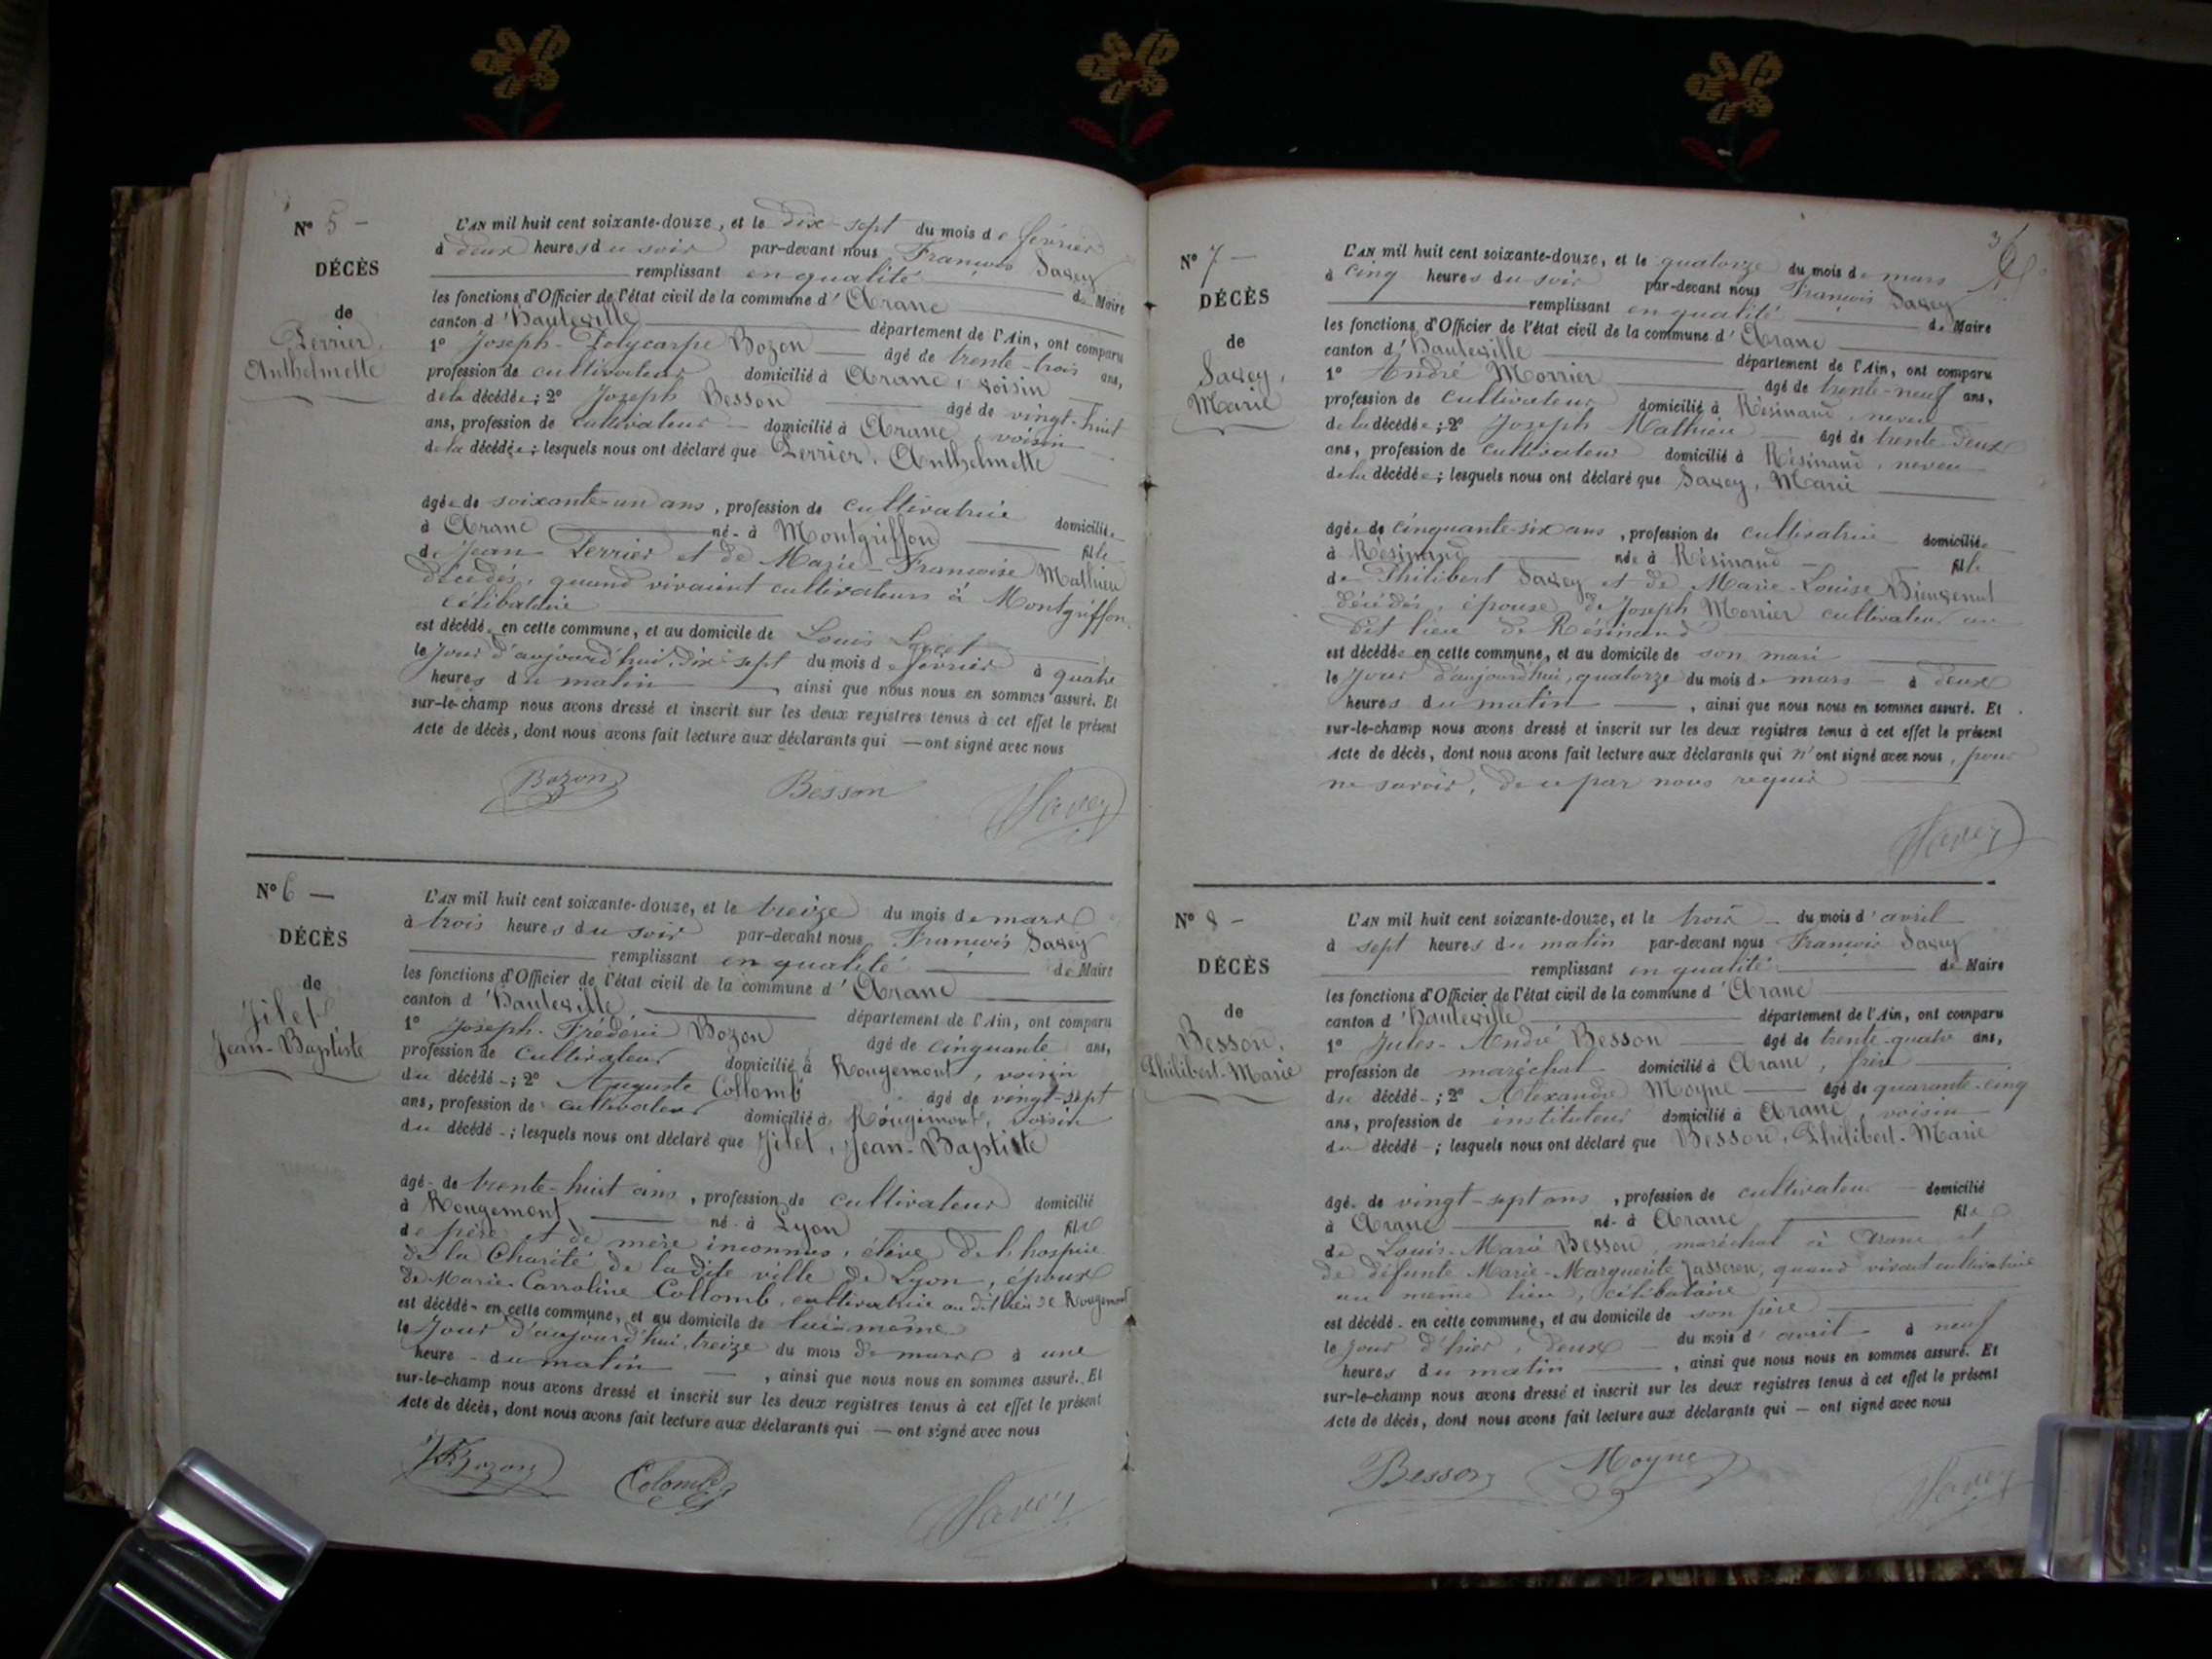 N° 5 —
DÉCÈS
de
Perrier,
Anthelmette
L'AN mil huit cent soixante-douze, et le dix-sept du mois de février
à deux heures du soir par-devant nous François Savey
remplissant en qualité de Maire
les fonctions d'Officier de l'état civil de la commune d'Aranc
canton d'Hauteville département de l'Ain, ont comparu
1° Joseph-Polycarpe Bozon âgé de trente-trois ans,
profession de cultivateur domicilié à Aranc, voisin
de la décédée ; 2° Joseph Besson âgé de vingt-huit
ans, profession de cultivateur domicilié à Aranc, voisin
de la décédée ; lesquels nous ont déclaré que Perrier, Anthelmette
âgée de soixante-un ans, profession de cultivatrice domiciliée
à Aranc né- à Montgriffon fille
de Jean Perrier et de Marie-Françoise Mathieu
décédés, quand vivaient cultivateurs à Montgriffon,
célibataire
est décédé- en cette commune, et au domicile de Louis
le jour d'aujourd'hui, dix-sept du mois de février à quatre
heures du matin, ainsi que nous nous en sommes assuré. Et
sur-le-champ nous avons dressé et inscrit sur les deux registres tenus à cet effet le présent
Acte de décès, dont nous avons fait lecture aux déclarants qui — ont signé avec nous
Bozon Besson Savey
N° 6 —
DÉCÈS
de
Jilet
Jean-Baptiste
L'AN mil huit cent soixante-douze, et le treize du mois de mars
à trois heures du soir par-devant nous François Savey
remplissant en qualité de Maire
les fonctions d'Officier de l'état civil de la commune d'Aranc
canton d'Hauteville département de l'Ain, ont comparu
1° Joseph-Frédéric Bozon âgé de cinquante ans,
profession de cultivateur domicilié à Rougemont, voisin
du décédé - ; 2° Auguste Collomb âgé de vingt-sept
ans, profession de cultivateur domicilié à Rougemont, voisin
du décédé - ; lesquels nous ont déclaré que Jilet, Jean-Baptiste
âgé- de trente-huit ans, profession de cultivateur domicilié
à Rougemont né- à Lyon fils
de père et de mère inconnus, élève de l'hospice
de la Charité de ladite ville de Lyon, époux
de Marie-Carroline Collomb, cultivatrice au dit lieu de Rougemont
est décédé- en cette commune, et au domicile de lui-même
le jour d'aujourd'hui, treize du mois de mars à une
heure - du matin — , ainsi que nous nous en sommes assuré. Et
sur-le-champ nous avons dressé et inscrit sur les deux registres tenus à cet effet le présent
Acte de décès, dont nous avons fait lecture aux déclarants qui — ont signé avec nous
Bozon Colomb Savey
3
N° 7 —
DÉCÈS
de
Savey,
Marie
L'AN mil huit cent soixante-douze, et le quatorze du mois de mars
à cinq heures du soir par-devant nous François Savey
remplissant en qualité de Maire
les fonctions d'Officier de l'état civil de la commune d'Aranc
canton d'Hauteville département de l'Ain, ont comparu
1° André Monier âgé de trente-neuf ans,
profession de cultivateur domicilié à Résinand, neveu
de la décédée ; 2° Joseph Mathieu âgé de trente-deux
ans, profession de cultivateur domicilié à Résinand, neveu
de la décédée ; lesquels nous ont déclaré que Savey, Marie
âgée de cinquante-six ans, profession de cultivatrice domiciliée
à Résinand née à Résinand fille
de Philibert Savey et de Marie-Louise
décédés, épouse de Joseph Monier cultivateur au
dit lieu de Résinand
est décédée en cette commune, et au domicile de son mari
le jour d'aujourd'hui, quatorze du mois de mars — à deux
heures du matin — , ainsi que nous nous en sommes assuré. Et
sur-le-champ nous avons dressé et inscrit sur les deux registres tenus à cet effet le présent
Acte de décès, dont nous avons fait lecture aux déclarants qui n'ont signé avec nous, pour
ne savoir, de ce par nous requis
Savey
N° 8 —
DÉCÈS
de
Besson,
Philibert-Marie
L'AN mil huit cent soixante-douze, et le trois du mois d'avril
à sept heures du matin par-devant nous François Savey
remplissant en qualité de Maire
les fonctions d'Officier de l'état civil de la commune d'Aranc
canton d'Hauteville département de l'Ain, ont comparu
1° Jules-André Besson âgé de trente-quatre ans,
profession de maréchal domicilié à Aranc, frère
du décédé - ; 2° Alexandre Moyne âgé de quarante-cinq
ans, profession de instituteur domicilié à Aranc, voisin
du décédé - ; lesquels nous ont déclaré que Besson, Philibert-Marie
âgé- de vingt-sept ans, profession de cultivateur domicilié
à Aranc né- à Aranc fils
de Louis-Marie Besson, maréchal à Aranc et
de défunte Marie-Marguerite Jasseron, quand vivait cultivatrice
au même lieu, célibataire
est décédé- en cette commune, et au domicile de son père
le jour d'hier, deux du mois d'avril à neuf
heures du matin — , ainsi que nous nous en sommes assuré. Et
sur-le-champ nous avons dressé et inscrit sur les deux registres tenus à cet effet le présent
Acte de décès, dont nous avons fait lecture aux déclarants qui — ont signé avec nous
Besson Moyne Savey